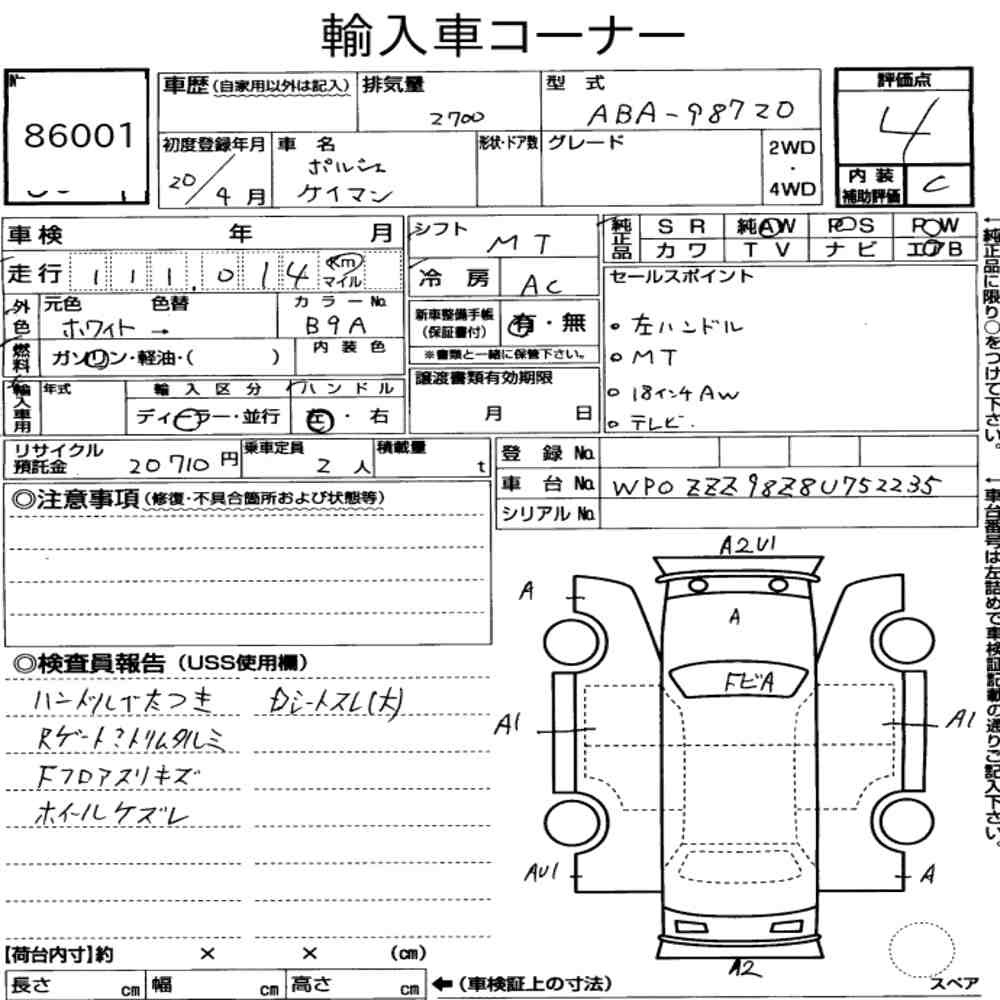 輸入車コーナー
86001
車歴(自家用以外は記入)
排気量
2700
型式
ABA-98720
評価点
4
初度登録年月
20/4月
車名
ポルシェ
ケイマン
形状・ドア数
グレード
2WD
・
4WD
内装
補助評価
C
車検 年 月
シフト
MT
純正品
SR 純AW PS PW
カワ TV ナビ エアB
走行 111,014 Km マイル
冷房
AC
セールスポイント
・左ハンドル
・MT
・18インチAW
・テレビ
外色
元色 色替
ホワイト→
カラーNo.
B9A
新車整備手帳
(保証書付)
有・無
※書類と一緒に保管下さい。
燃料
ガソリン・軽油・( )
内装色
譲渡書類有効期限
月 日
輸入車用
年式
輸入区分
ディーラー・並行
ハンドル
左・右
リサイクル
預託金
20710円
乗車定員
2人
積載量
t
登録No.
車台No.
WP0ZZZ98Z8U752235
シリアルNo.
←純正品に限り○をつけて下さい。
←車台番号は左詰めで車検証記載の通りご記入下さい。
◎注意事項(修復・不具合箇所および状態等)
◎検査員報告(USS使用欄)
ハンドルガタつき
Dシートスレ(大)
Fフロアスリキズ
A2U1
A
A
FビA
A1
A1
AU1
A
A2
【荷台内寸】約 × × (cm)
長さ cm 幅 cm 高さ cm
←(車検証上の寸法)
スペア